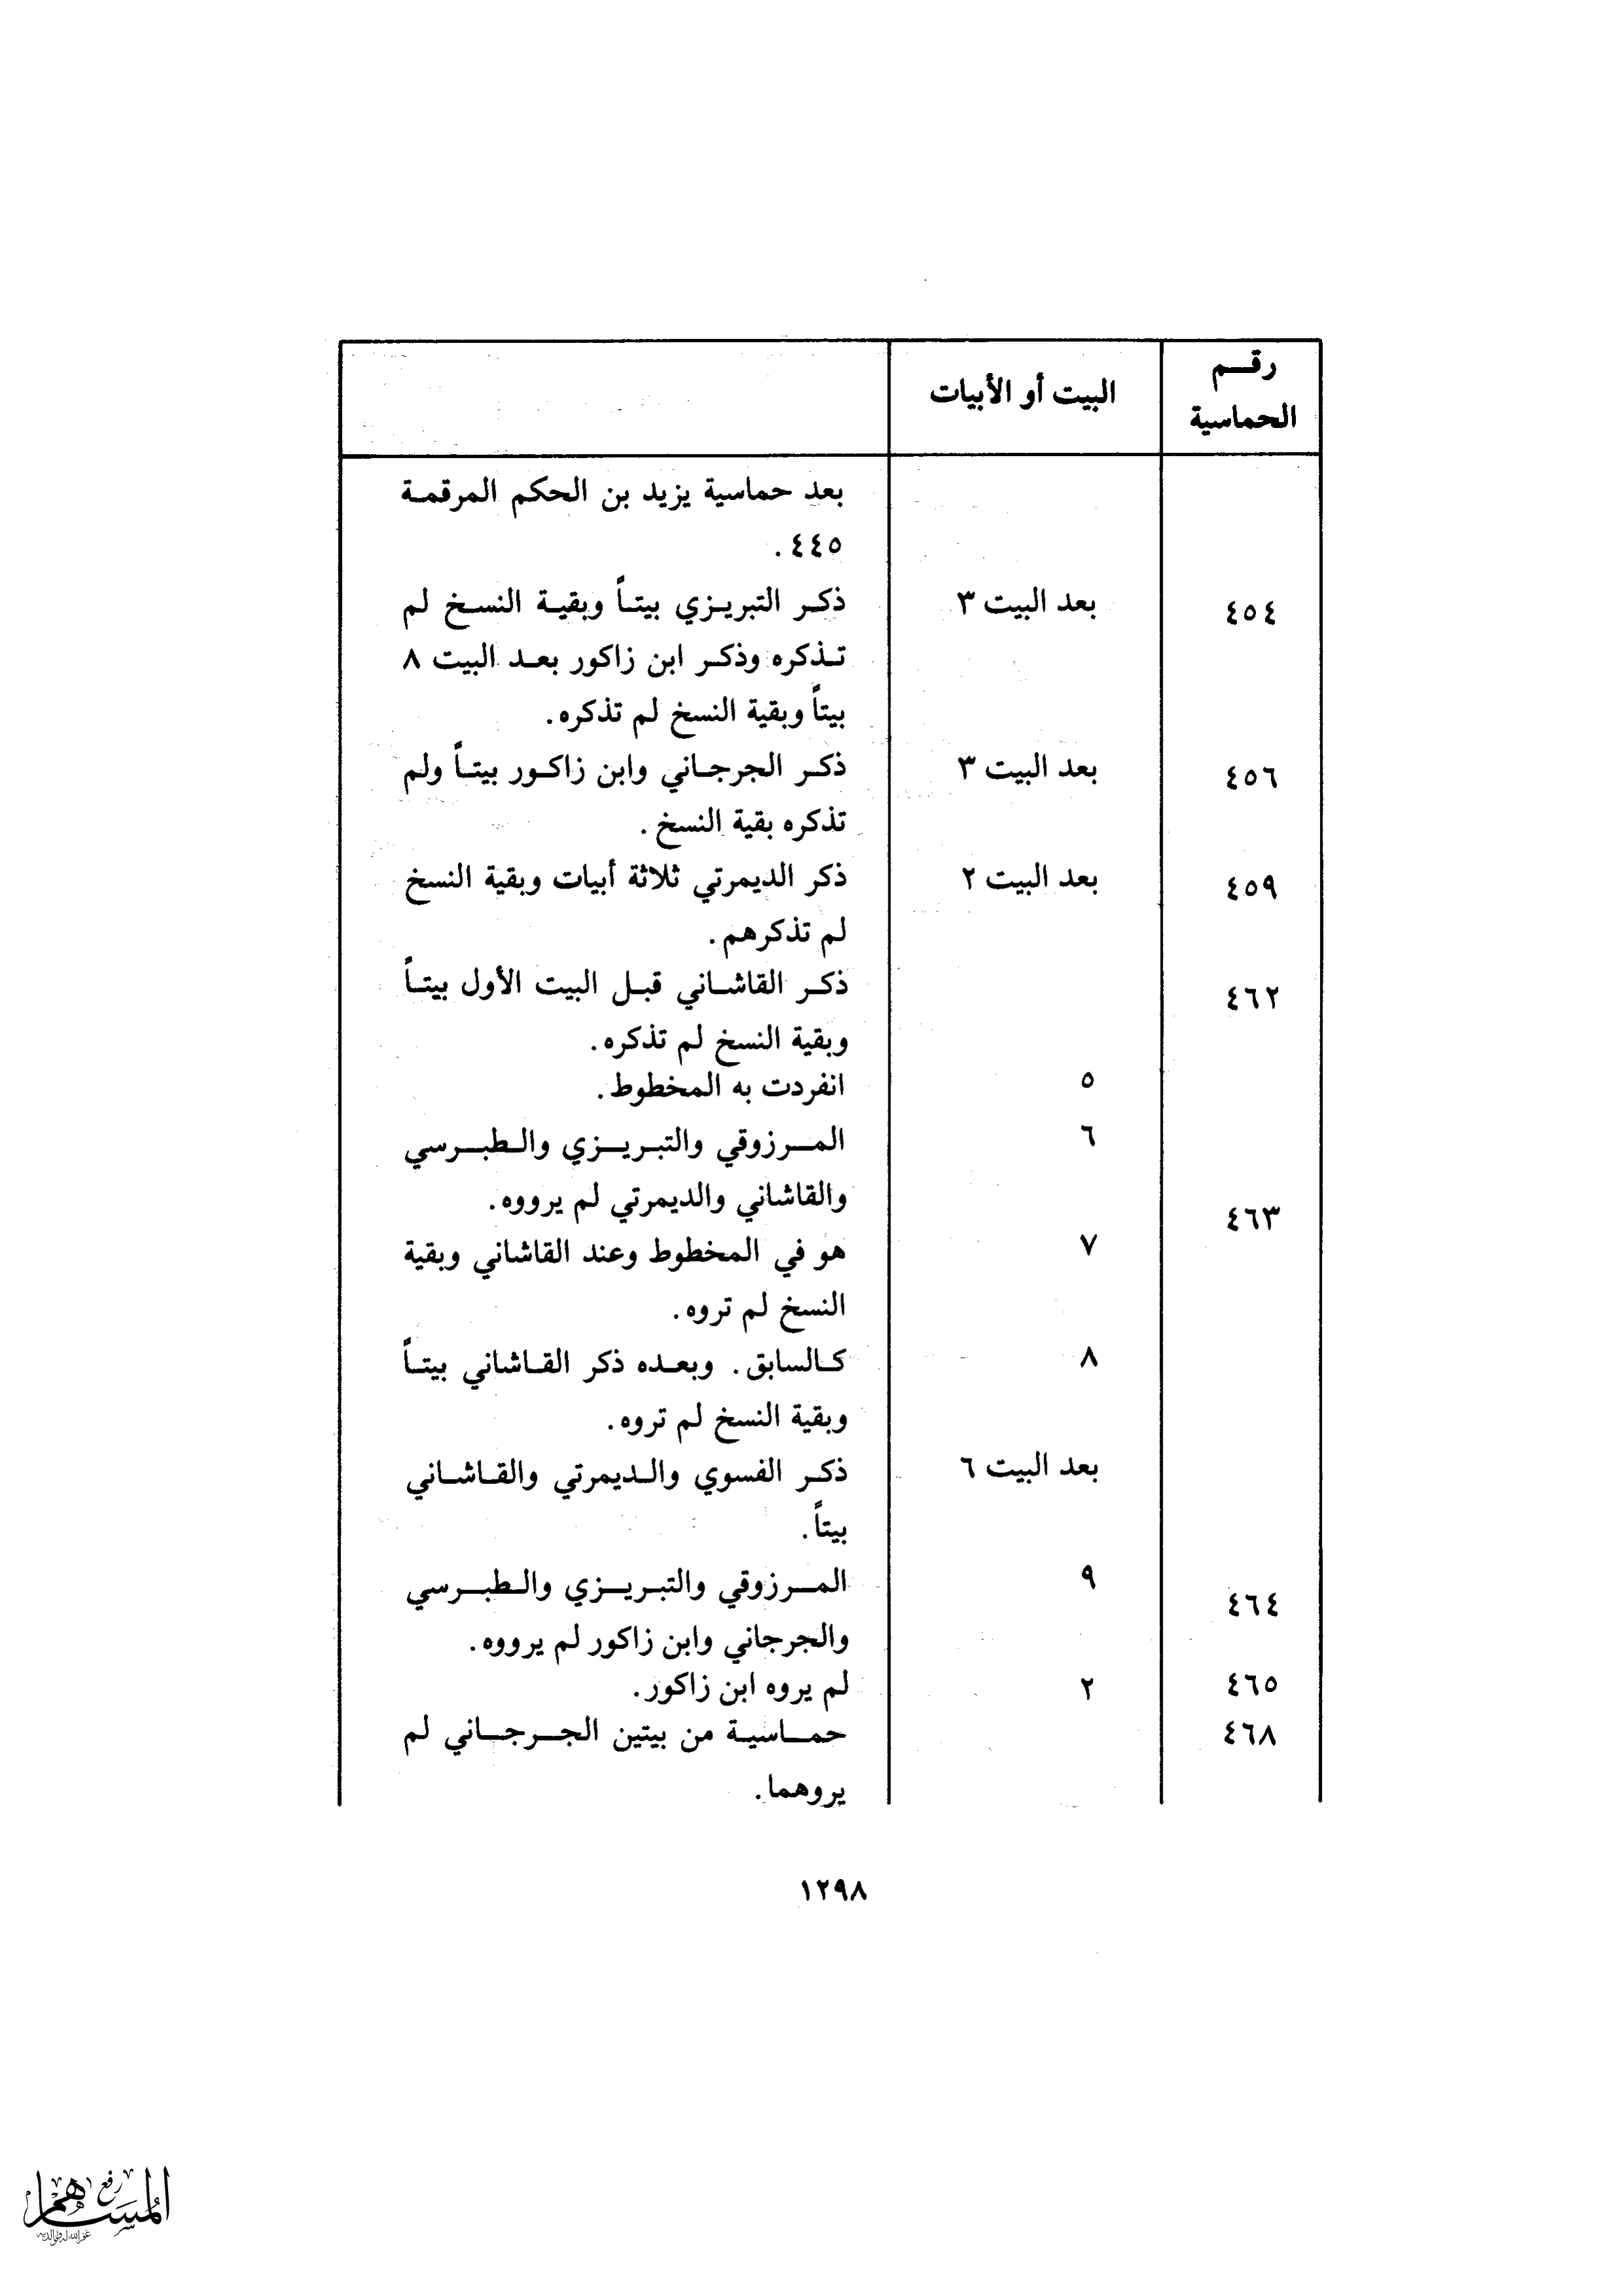 رقم
الحماسية
البيت أو الأبيات
بعد حماسية يزيد بن الحكم المرقمة
٤٤٥.
٤٥٤ بعد البيت ٣ ذكر التبريزي بيتاً وبقية النسخ لم
تذكره وذكر ابن زاكور بعد البيت ٨
بيتاً وبقية النسخ لم تذكره.
٤٥٦ بعد البيت ٣ ذكر الجرجاني وابن زاكور بيتاً ولم
تذكره بقية النسخ.
٤٥٩ بعد البيت ٢ ذكر الديمرتي ثلاثة أبيات وبقية النسخ
لم تذكرهم.
٤٦٢ ذكر القاشاني قبل البيت الأول بيتاً
وبقية النسخ لم تذكره.
٥ انفردت به المخطوط.
٦ المرزوقي والتبريزي والطبرسي
والقاشاني والديمرتي لم يرووه.
٤٦٣
٧ هو في المخطوط وعند القاشاني وبقية
النسخ لم تروه.
٨ كالسابق. وبعده ذكر القاشاني بيتاً
وبقية النسخ لم تروه.
بعد البيت ٦ ذكر الفسوي والديمرتي والقاشاني
بيتاً.
٤٦٤ ٩ المرزوقي والتبريزي والطبرسي
والجرجاني وابن زاكور لم يرووه.
٤٦٥ ٢ لم يروه ابن زاكور.
٤٦٨ حماسية من بيتين الجرجاني لم
يروهما.
١٢٩٨
رفع
المساهم
غفر الله له ولوالديه